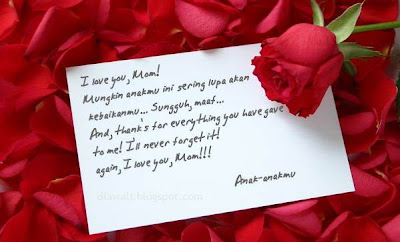 I love you, Mom!
Mungkin anakmu ini sering lupa akan
kebaikanmu... Sungguh, maaf...
And, thanks for everything you have gave
to me! I'll never forget it!
again, I love you, Mom!!!
Anak-anakmu